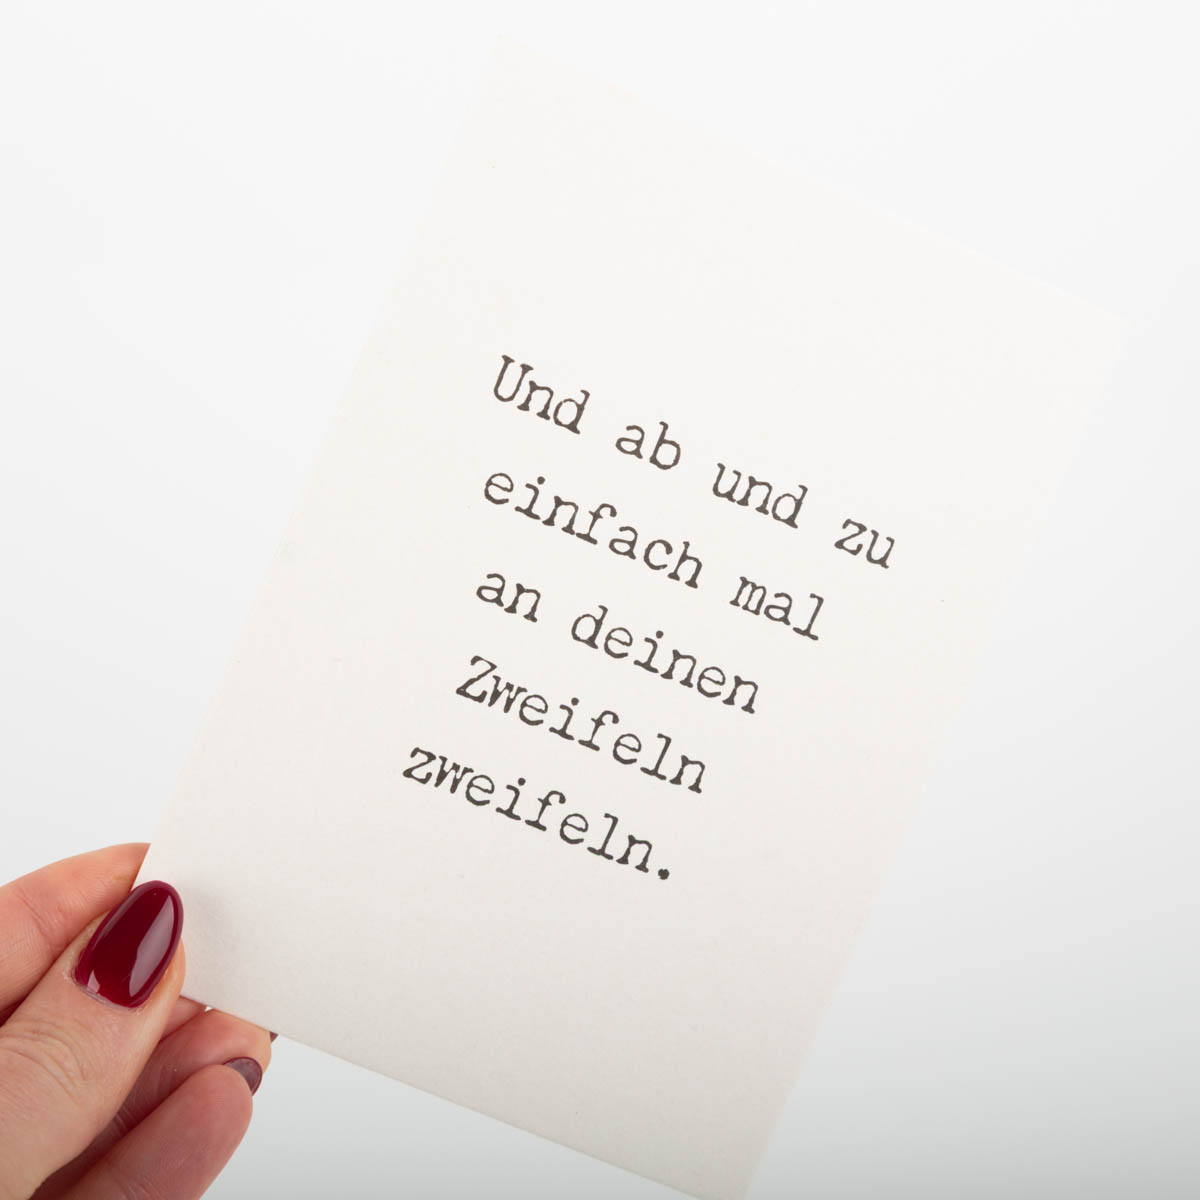 Und ab und zu
einfach mal
an deinen
Zweifeln
zweifeln.